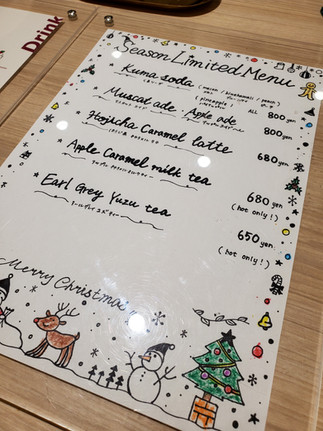 Drink
Season Limited Menu
Kuma soda (melon / blue hawaii / peach / pineapple) ALL 800 yen
* Muscat ade . Apple ade 800 yen
* Hojicha Caramel latte 680 yen
* Apple Caramel milk tea 680 yen
(hot only!)
* Earl Grey Yuzu tea 650 yen
(hot only!)
Merry Christmas